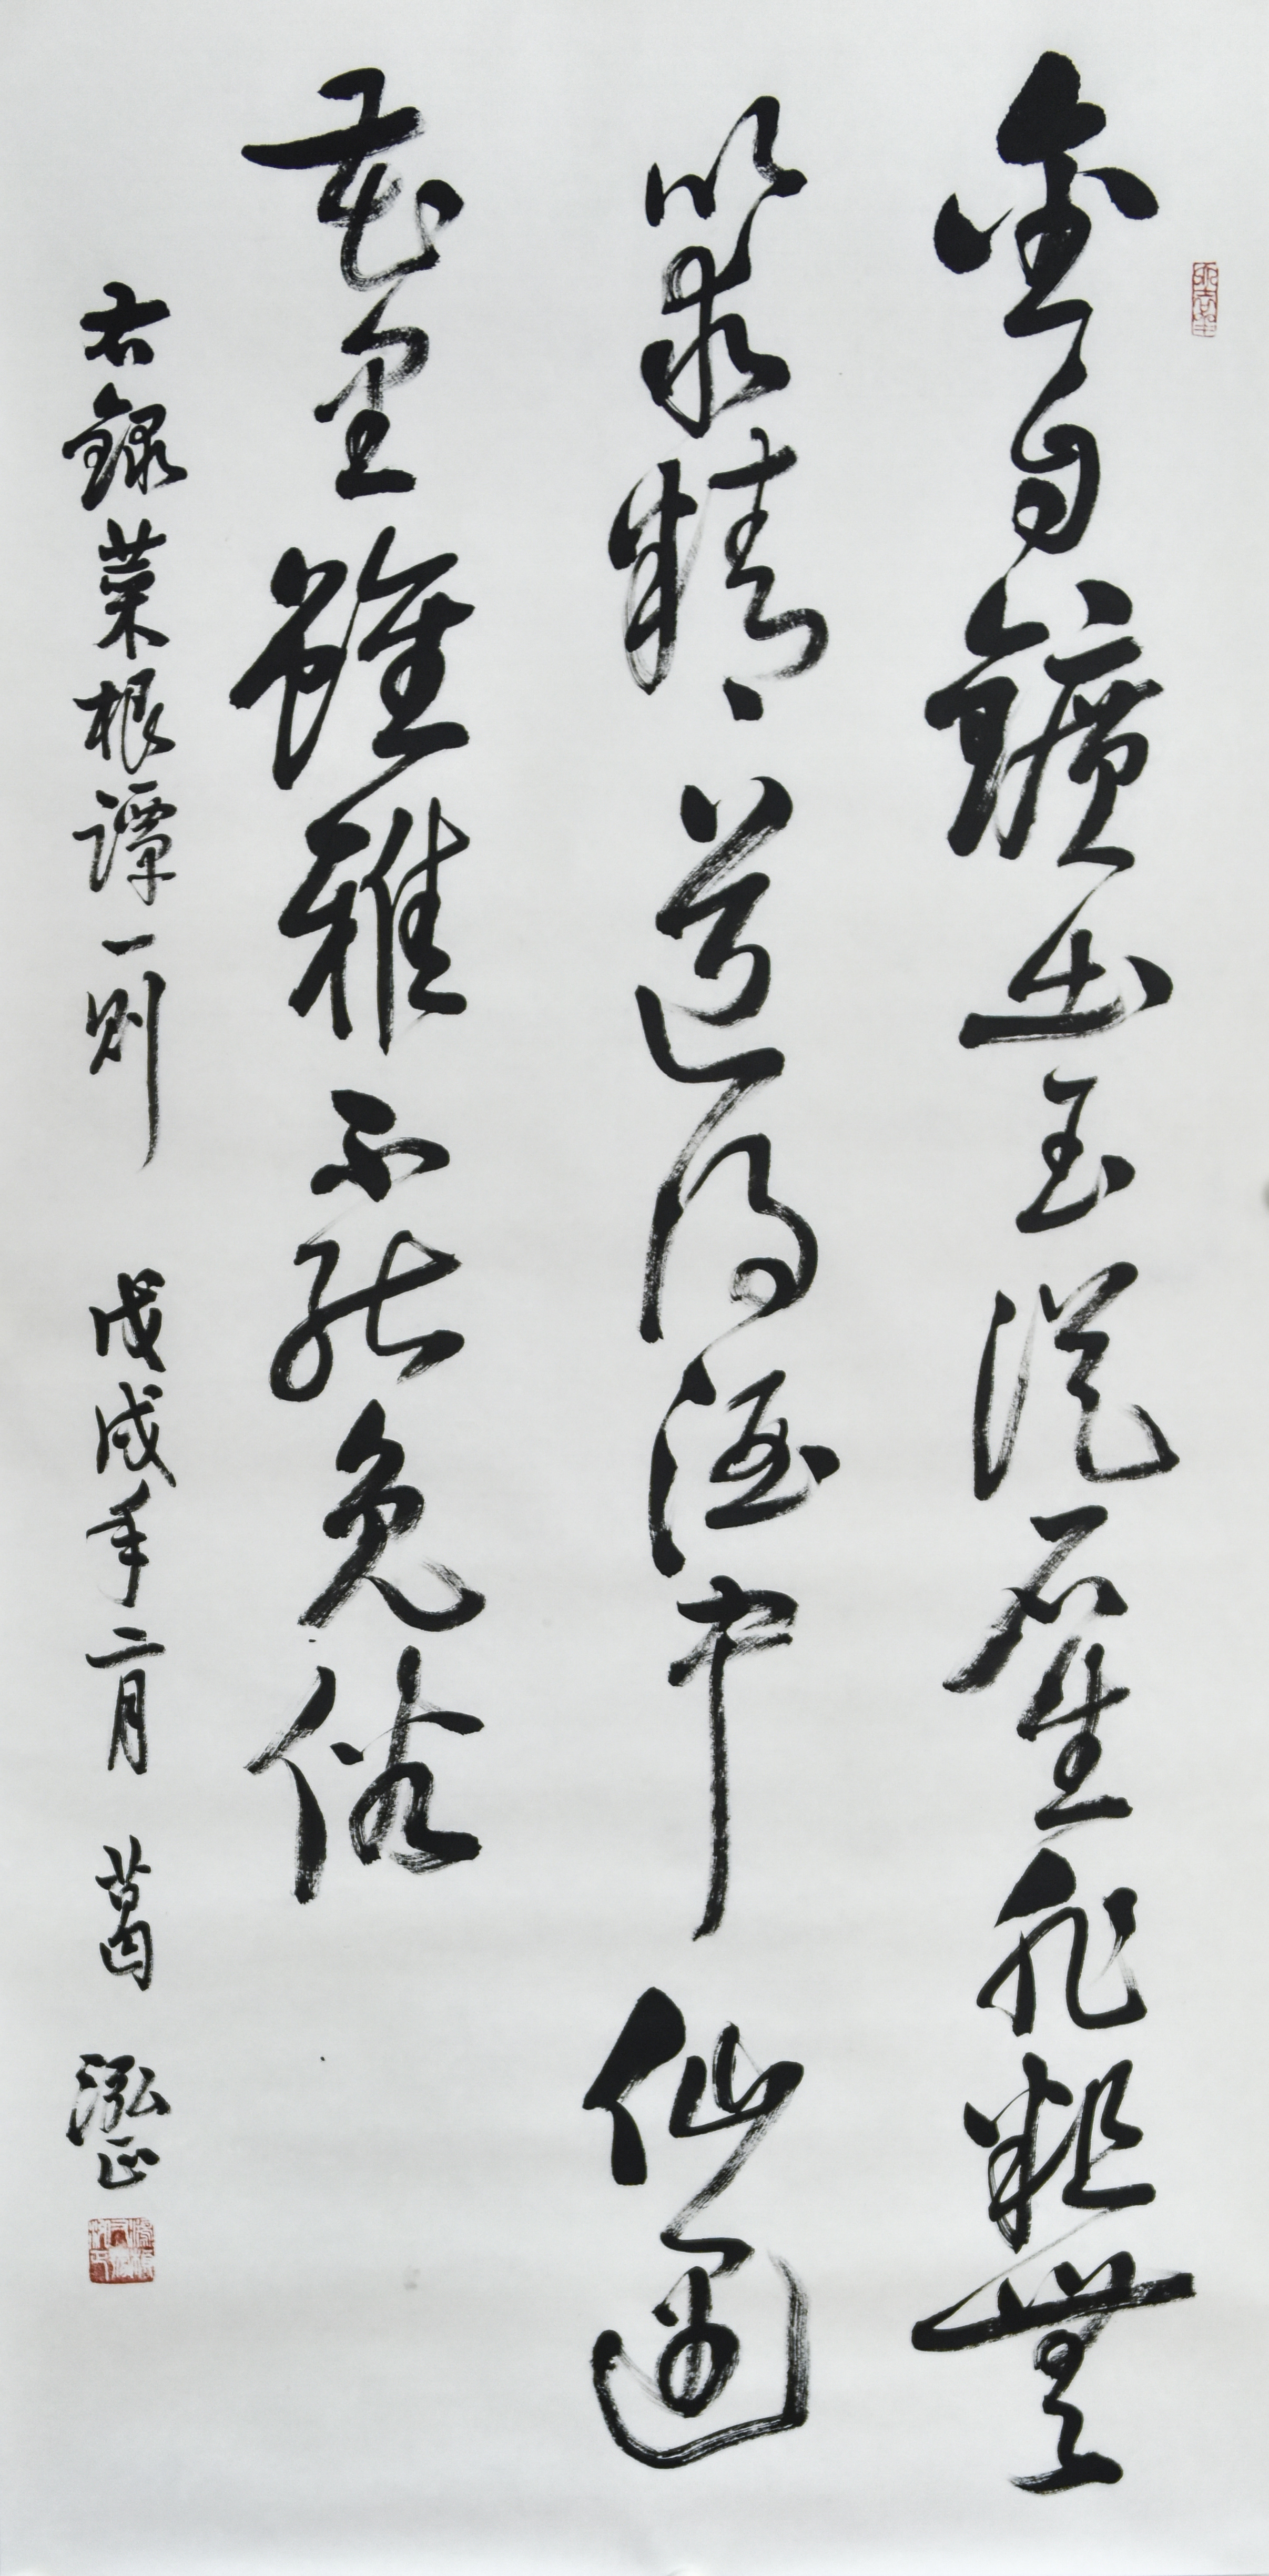 金自鑛出玉從石生非粗無
以求精道得酒中仙遇
花里雖雅不能免俗
右錄菜根譚一則 戊戌年二月 葛泓正